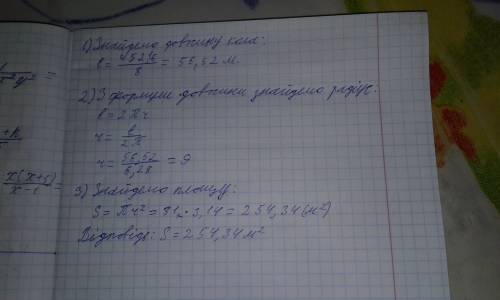 1) Знайдемо довжину кола:
l = 452,16/8 = 56,52 м.
2) З формули довжини знайдемо радіус.
l = 2πr
r = l/2π
r = 56,52/6,28 = 9
3) Знайдемо площу:
S = πr² = 81 · 3,14 = 254,34 (м²)
Відповідь: S = 254,34 м²
x(x+5)/x-1 =